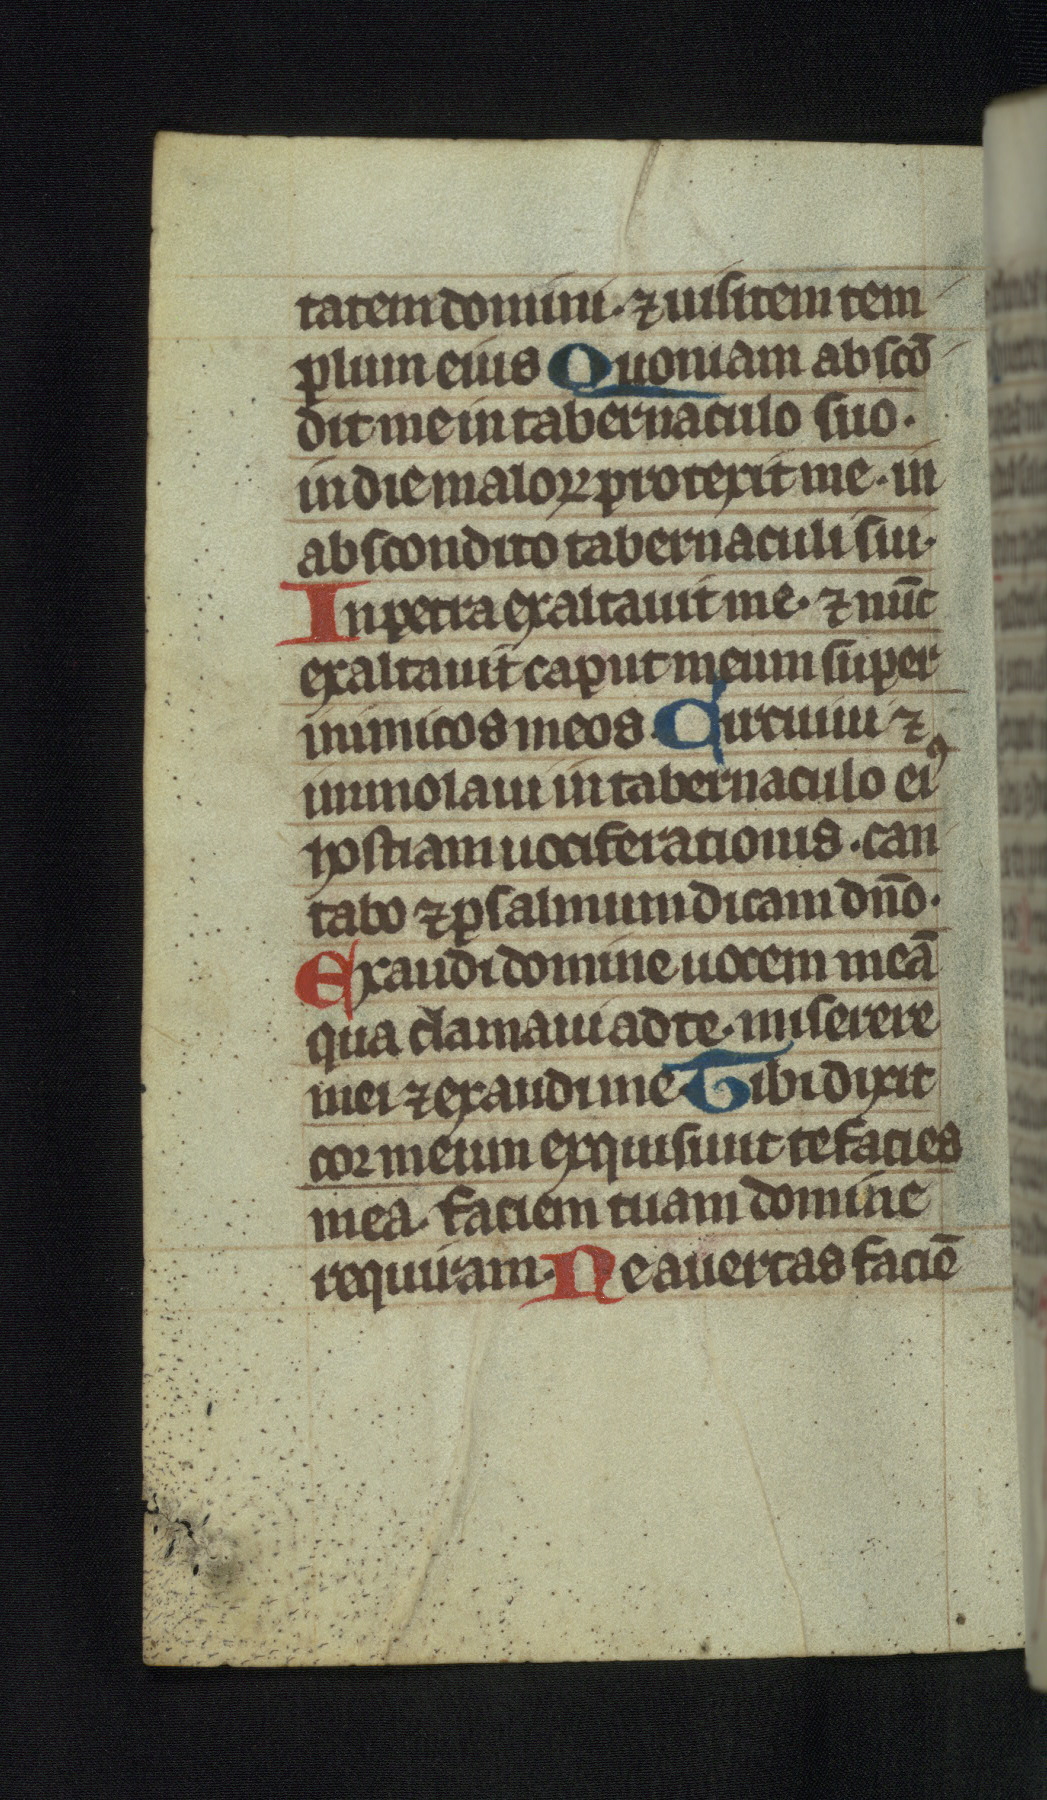 tatem domini. ⁊ uisitem tem
plum eius Quoniam abscō
dit me in tabernaculo suo.
in die maloꝝ protexit me. in
abscondito tabernaculi sui.
In petra exaltauit me. ⁊ nūc
exaltauit caput meum super
inimicos meos. Circuiui ⁊
immolaui in tabernaculo eiꝰ
hostiam uociferationis. can
tabo ⁊ psalmum dicam dn̄o.
Exaudi domine uocem meā
qua clamaui ad te. miserere
mei ⁊ exaudi me Tibi dixit
cor meum exquisiuit te facies
mea. faciem tuam domine
requiram. Ne auertas faciē